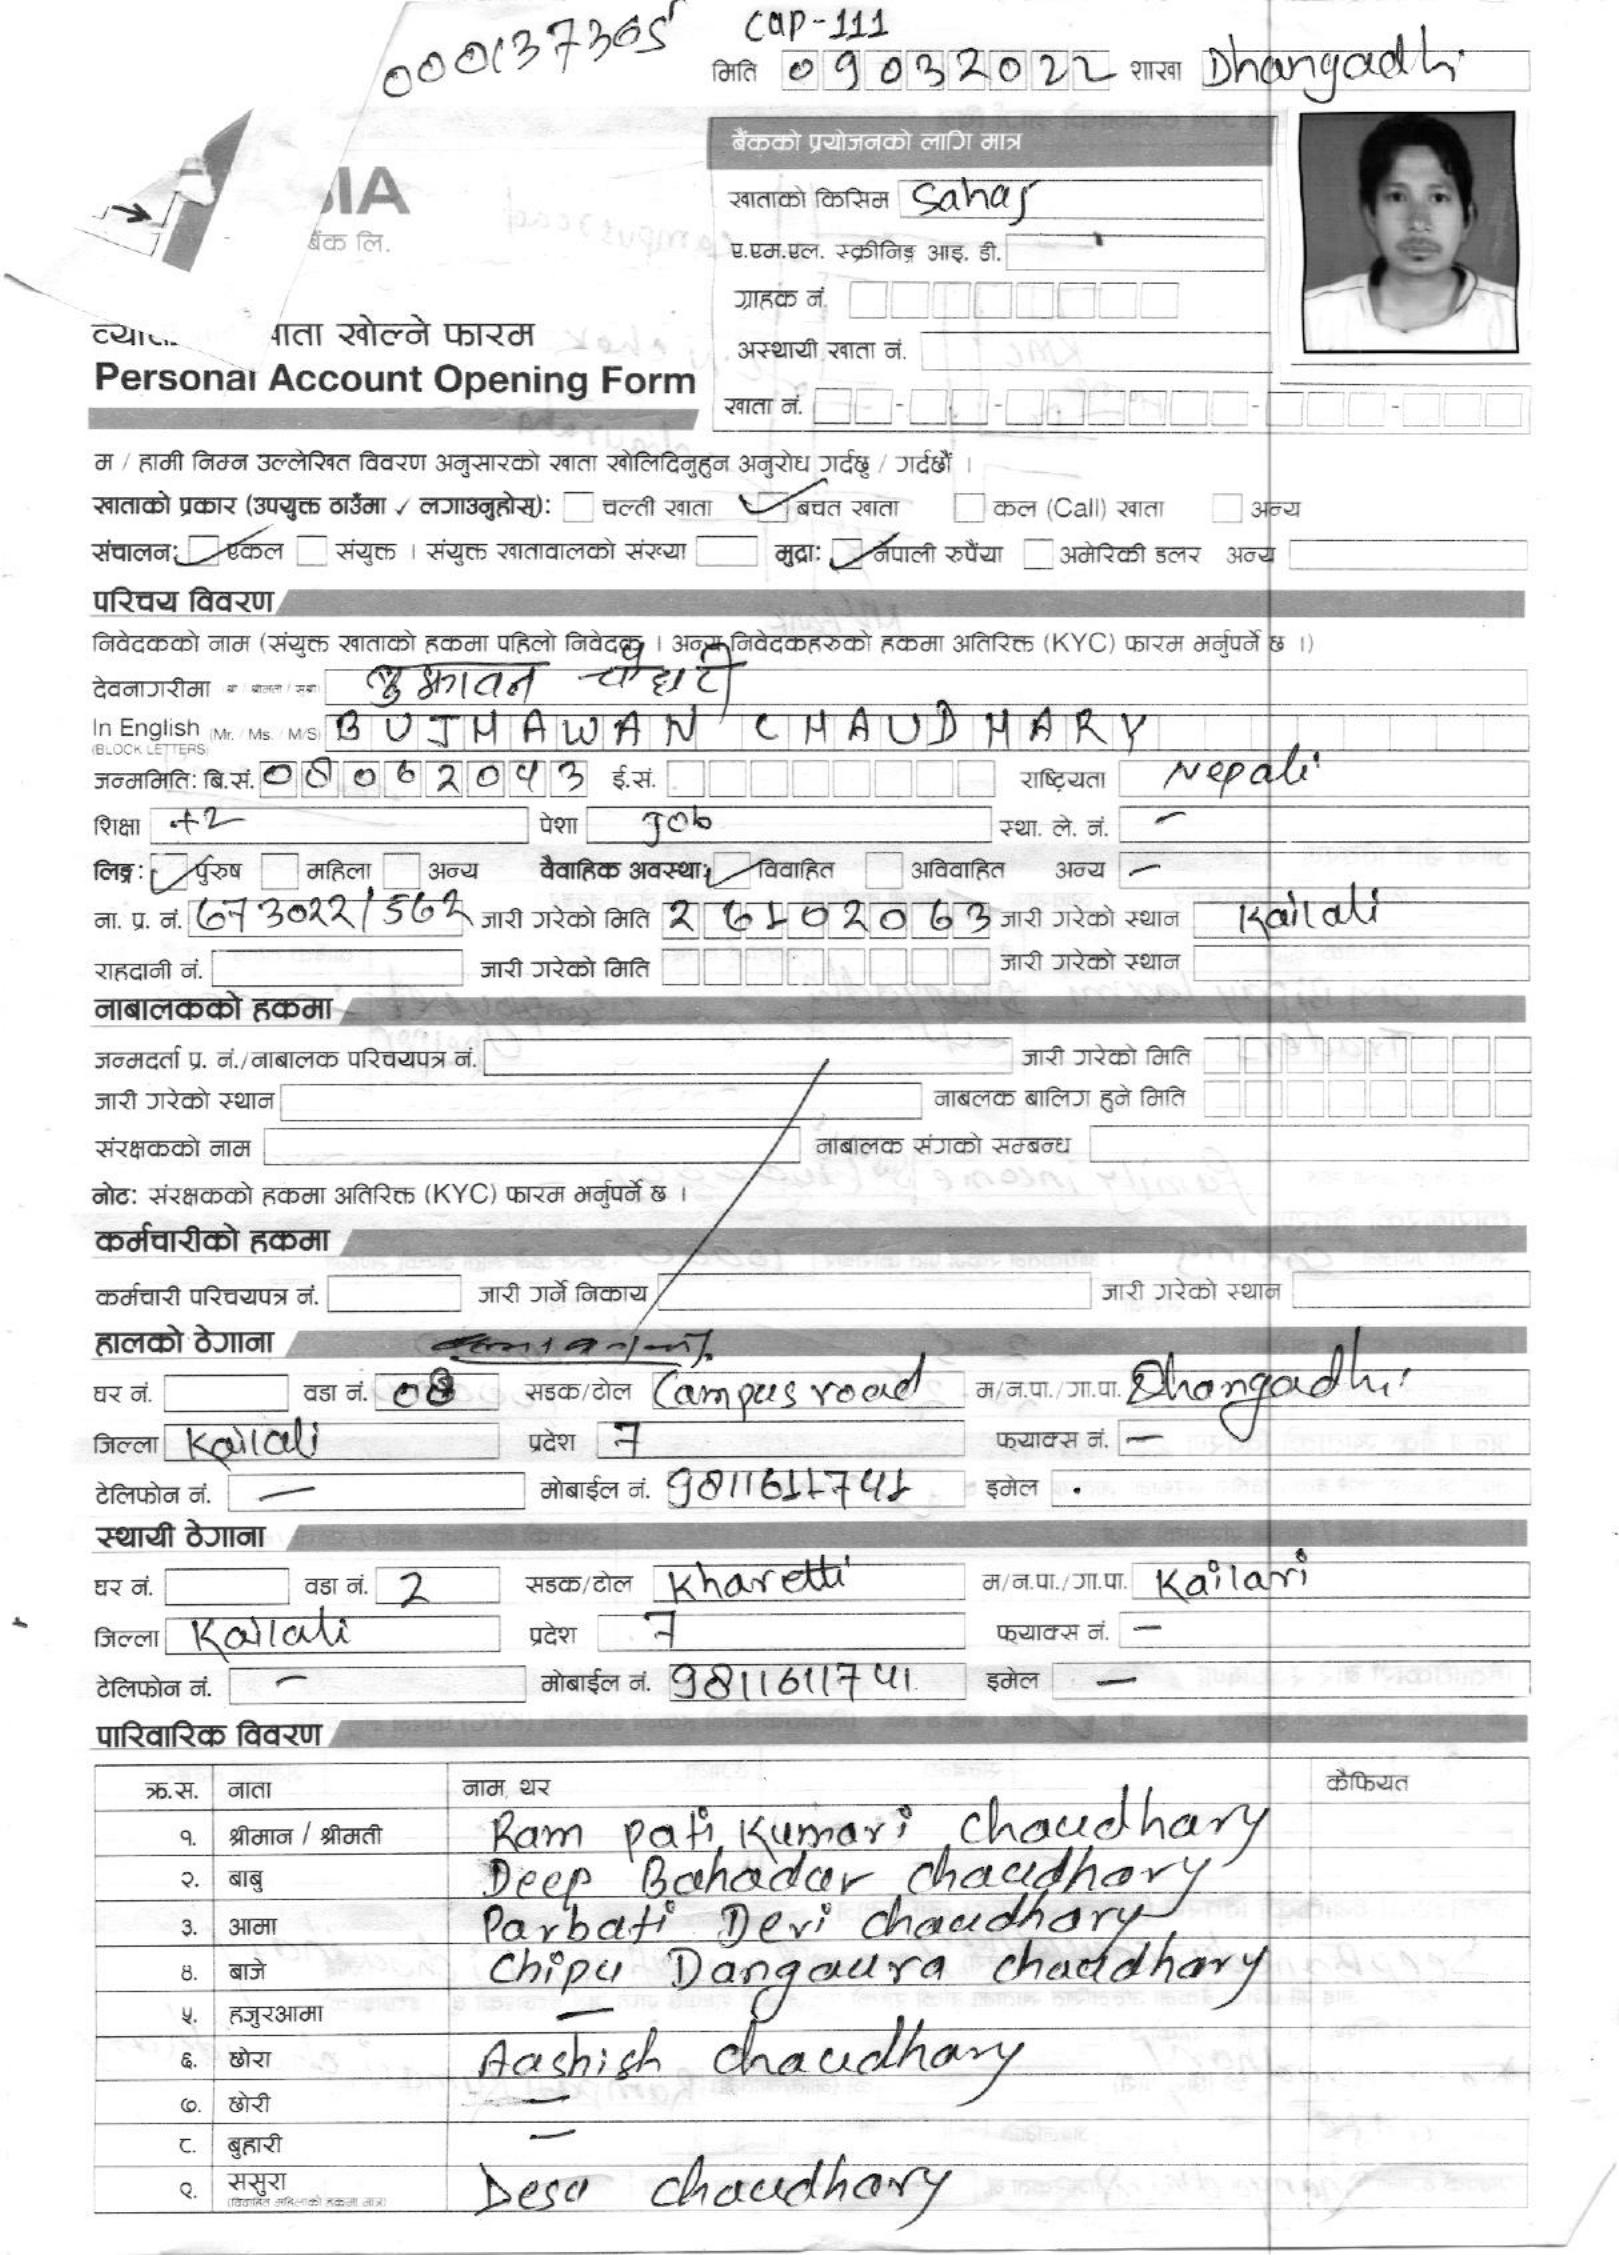 0000137305 CAP-111
मिति 09032022 शाखा Dhangadhi
बैंकको प्रयोजनको लागि मात्र
IA
बैंक लि.
खाताको किसिम Sahaj
ए.एम.एल. स्क्रीनिङ्ग आइ. डी.
ग्राहक नं.
अस्थायी खाता नं.
खाता खोल्ने फारम
Personal Account Opening Form
खाता नं.
म / हामी निम्न उल्लेखित विवरण अनुसारको खाता खोलिदिनुहुन अनुरोध गर्दछु / गर्दछौं ।
खाताको प्रकार (उपयुक्त ठाउँमा ✓ लगाउनुहोस्): चल्ती खाता ✓ बचत खाता कल (Call) खाता अन्य
संचालन: ✓ एकल संयुक्त । संयुक्त खातावालको संख्या मुद्रा: ✓ नेपाली रुपैंया अमेरिकी डलर अन्य
परिचय विवरण
निवेदकको नाम (संयुक्त खाताको हकमा पहिलो निवेदक । अन्य निवेदकहरुको हकमा अतिरिक्त (KYC) फारम भर्नुपर्ने छ ।)
देवनागरीमा बुझावन चौधरी
In English (Mr. / Ms. / M/S) BUJHAWAN CHAUDHARY
(BLOCK LETTERS)
जन्ममिति: बि.सं. 08062043 ई.सं. राष्ट्रियता Nepali
शिक्षा +2 पेशा Job स्था. ले. नं. -
लिङ्ग: ✓ पुरुष महिला अन्य वैवाहिक अवस्था: ✓ विवाहित अविवाहित अन्य -
ना. प्र. नं. 673022/562 जारी गरेको मिति 26102063 जारी गरेको स्थान Kailali
राहदानी नं. जारी गरेको मिति जारी गरेको स्थान
नाबालकको हकमा
जन्मदर्ता प्र. नं./नाबालक परिचयपत्र नं. जारी गरेको मिति
जारी गरेको स्थान नाबलक बालिग हुने मिति
संरक्षकको नाम नाबालक संगको सम्बन्ध
नोट: संरक्षकको हकमा अतिरिक्त (KYC) फारम भर्नुपर्ने छ ।
कर्मचारीको हकमा
कर्मचारी परिचयपत्र नं. जारी गर्ने निकाय जारी गरेको स्थान
हालको ठेगाना
घर नं. वडा नं. 08 सडक/टोल Campus road म/न.पा./गा.पा. Dhangadhi
जिल्ला Kailali प्रदेश 7 फ्याक्स नं. -
टेलिफोन नं. - मोबाईल नं. 9811611741 इमेल
स्थायी ठेगाना
घर नं. वडा नं. 2 सडक/टोल Kharetti म/न.पा./गा.पा. Kailari
जिल्ला Kailali प्रदेश 7 फ्याक्स नं. -
टेलिफोन नं. - मोबाईल नं. 9811611741 इमेल -
पारिवारिक विवरण
क्र.स. नाता नाम, थर कैफियत
१. श्रीमान / श्रीमती Ram pati Kumari chaudhary
२. बाबु Deep Bahadar chaudhary
३. आमा Parbati Devi chaudhary
४. बाजे Chipu Dangaura chaudhary
५. हजुरआमा -
६. छोरा Aashish chaudhary
७. छोरी -
८. बुहारी -
९. ससुरा Desa chaudhary
(विवाहित महिलाको हकमा मात्र)